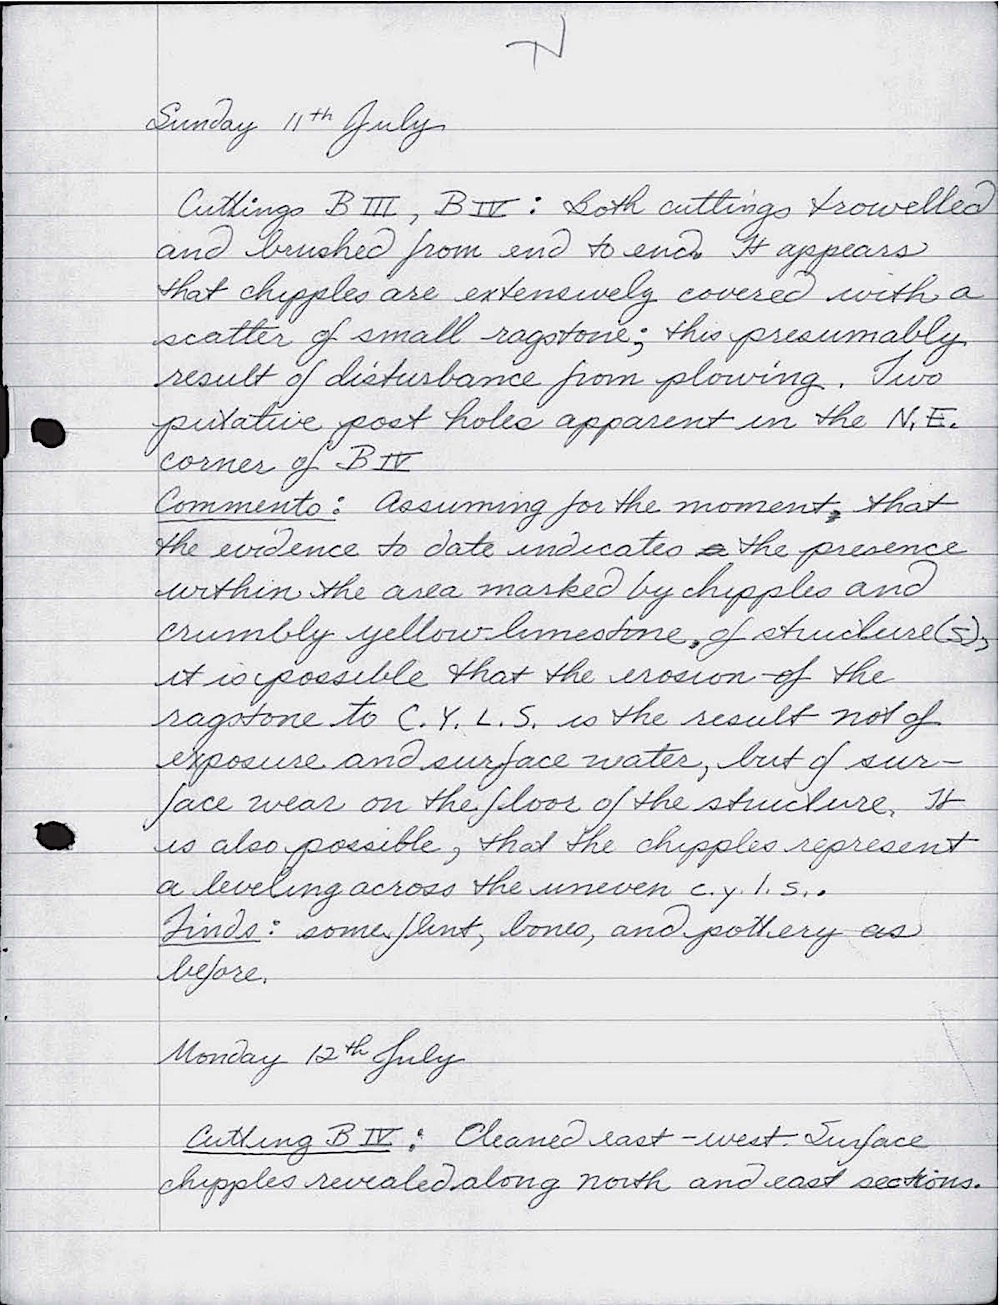 Sunday 11th July
Cuttings B III, B IV: Both cuttings trowelled
and brushed from end to end. It appears
that chipples are extensively covered with a
scatter of small ragstone; this presumably
result of disturbance from plowing. Two
putative post holes apparent in the N.E.
corner of B IV
Comments: Assuming for the moment, that
the evidence to date indicates the presence
within the area marked by chipples and
crumbly yellow limestone, of structure(s),
it is possible that the erosion of the
ragstone to C.Y.L.S. is the result not of
exposure and surface water, but of sur-
face wear on the floor of the structure. It
is also possible, that the chipples represent
a leveling across the uneven c.y.l.s..
Finds: some flint, bones, and pottery as
before.
Monday 12th July
Cutting B IV: Cleaned east-west. Surface
chipples revealed along north and east sections.